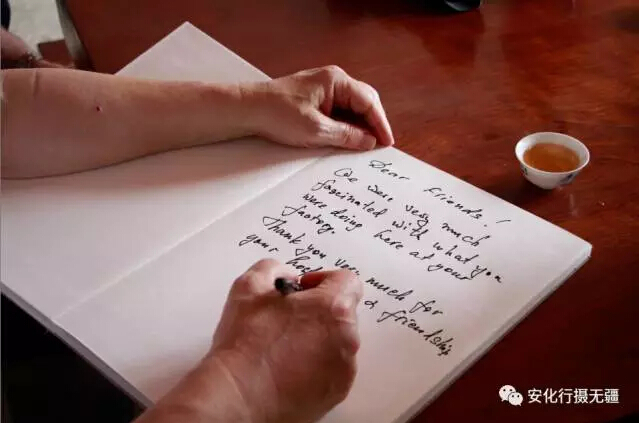 Dear Friends!
We were very much
fascinated with what you
were doing here at your
factory.
Thank you very much for
your & friendship
安化行摄无疆